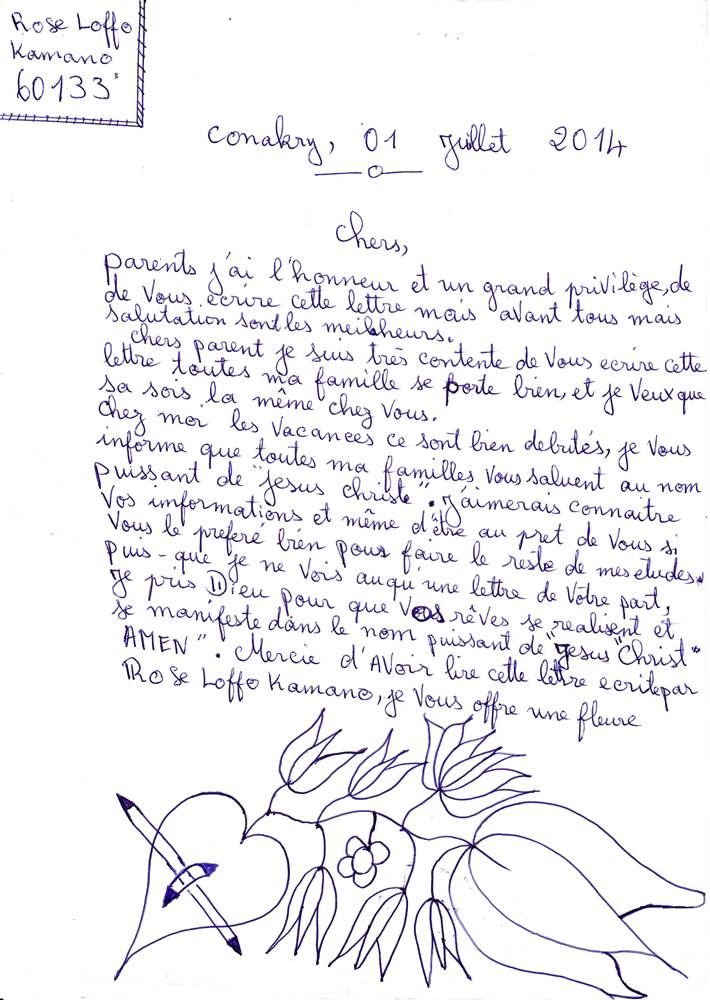 Rose Loffo
Kamano
60133
Conakry, 01 Juillet 2014
Chers,
parents j'ai l'honneur et un grand privilège, de
de vous ecrire cette lettre mais avant tous mais
salutation sont les meilheurs.
chers parent je suis très contente de vous ecrire cette
lettre toutes ma famille se porte bien, et je veux que
sa sois la même chez vous.
chez moi les vacances ce sont bien debutés, je vous
informe que toutes ma familles vous saluent au nom
puissant de "Jesus christe". J'aimerais connaitre
vos informations et même d'être au pret de vous si
vous le preferé bien pour faire le reste de mes etudes.
puis-que je ne vois auqu'une lettre de votre part,
je pris Dieu pour que vos rêves se realisent et
se manifeste dans le nom puissant de "Jesus "Christ"
AMEN". Mercie d'Avoir lire cette lettre ecrite par
Rose Loffo Kamano, je vous offre une fleure